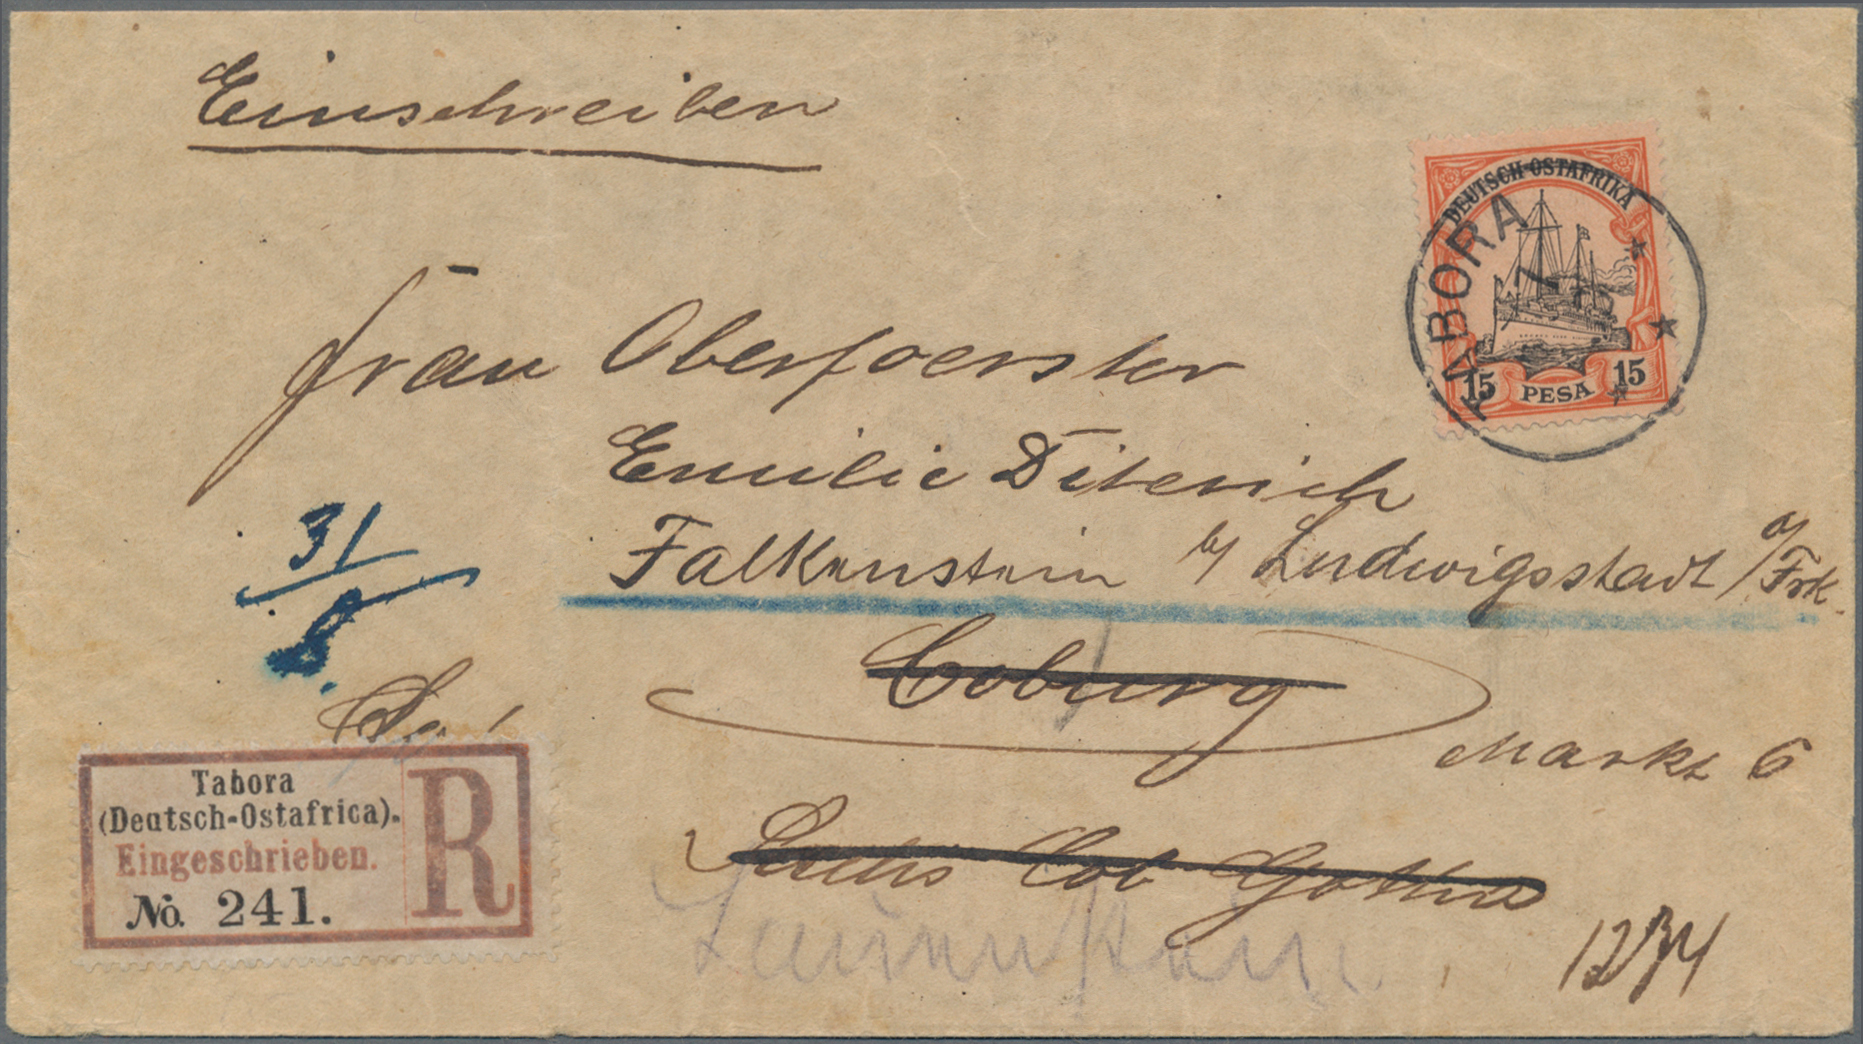 Einschreiben
DEUTSCH-OSTAFRIKA
TABORA
15 PESA 15
Frau Oberfoerster
Emilie Diterich
Falkenstein b/ Ludwigsstadt a/Frk.
31/8.
Coburg
Markt 6
Cob Gotha
Lauenstein.
Tabora
(Deutsch-Ostafrica).
Eingeschrieben.
No. 241.
R